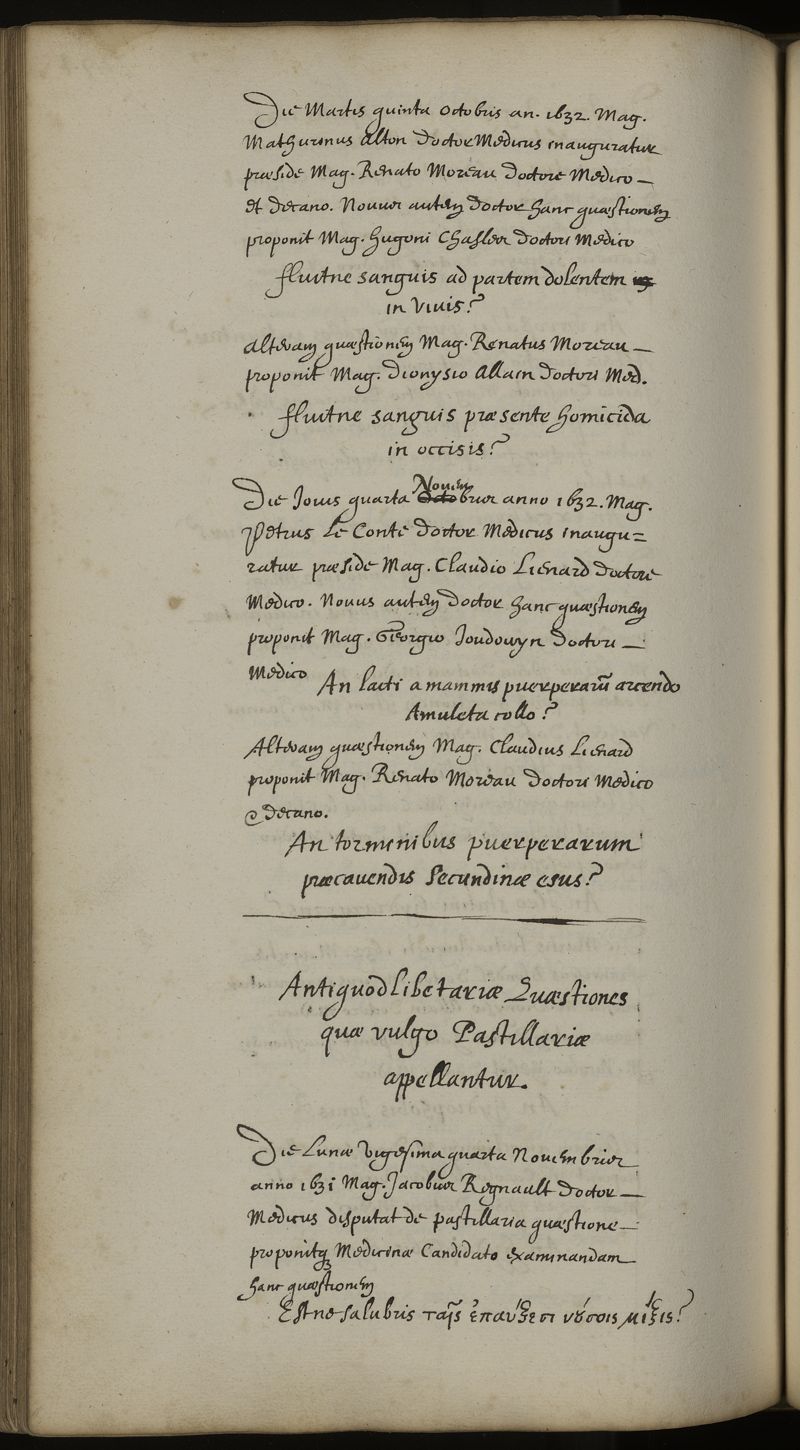 Die Martis quinta Octobris an. 1632. Mag.
Mathurinus Alton Doctor Medicus inauguratur
præside Mag. Renato Moreau Doctore Medico —
et Decano. Nouus autem Doctor hanc quæstionem
proponit Mag. Hugoni Chasles Doctori Medico
fluitne sanguis ad partem dolentem
in Viuis?
Alteram quæstionem Mag. Renatus Moreau —
proponit Mag. Dionysio Allain Doctori Med.
fluitne sanguis præsente homicida
in occisis?
Die Jouis quarta Nouembris anno 1632. Mag.
Petrus Le Conte Doctor Medicus inaugu=
ratur præside Mag. Claudio Lienard Doctore
Medico. Nouus autem Doctor hanc quæstionem
proponit Mag. Georgio Joudouyn Doctori —
Medico
An lacti a mammis puerperarū arcendo
Amuleta collo?
Alteram quæstionem Mag. Claudius Lienard
proponit Mag. Renato Moreau Doctori Medico
& Decano.
An torminibus puerperarum
præcauendis Secundinæ esus?
Antiquodlibetariæ Quæstiones
quæ vulgo Pastillariæ
appellantur.
Die Lunæ Vigesima quarta Nouembris
anno 1631 Mag. Jacobus Regnault Doctor —
Medicus disputat de pastillaria quæstione —
proponitq Medicinæ Candidato examinandam
hanc quæstionem
Estne salubris ταῖς ἐπαύξεσι νόσοις μίξις?